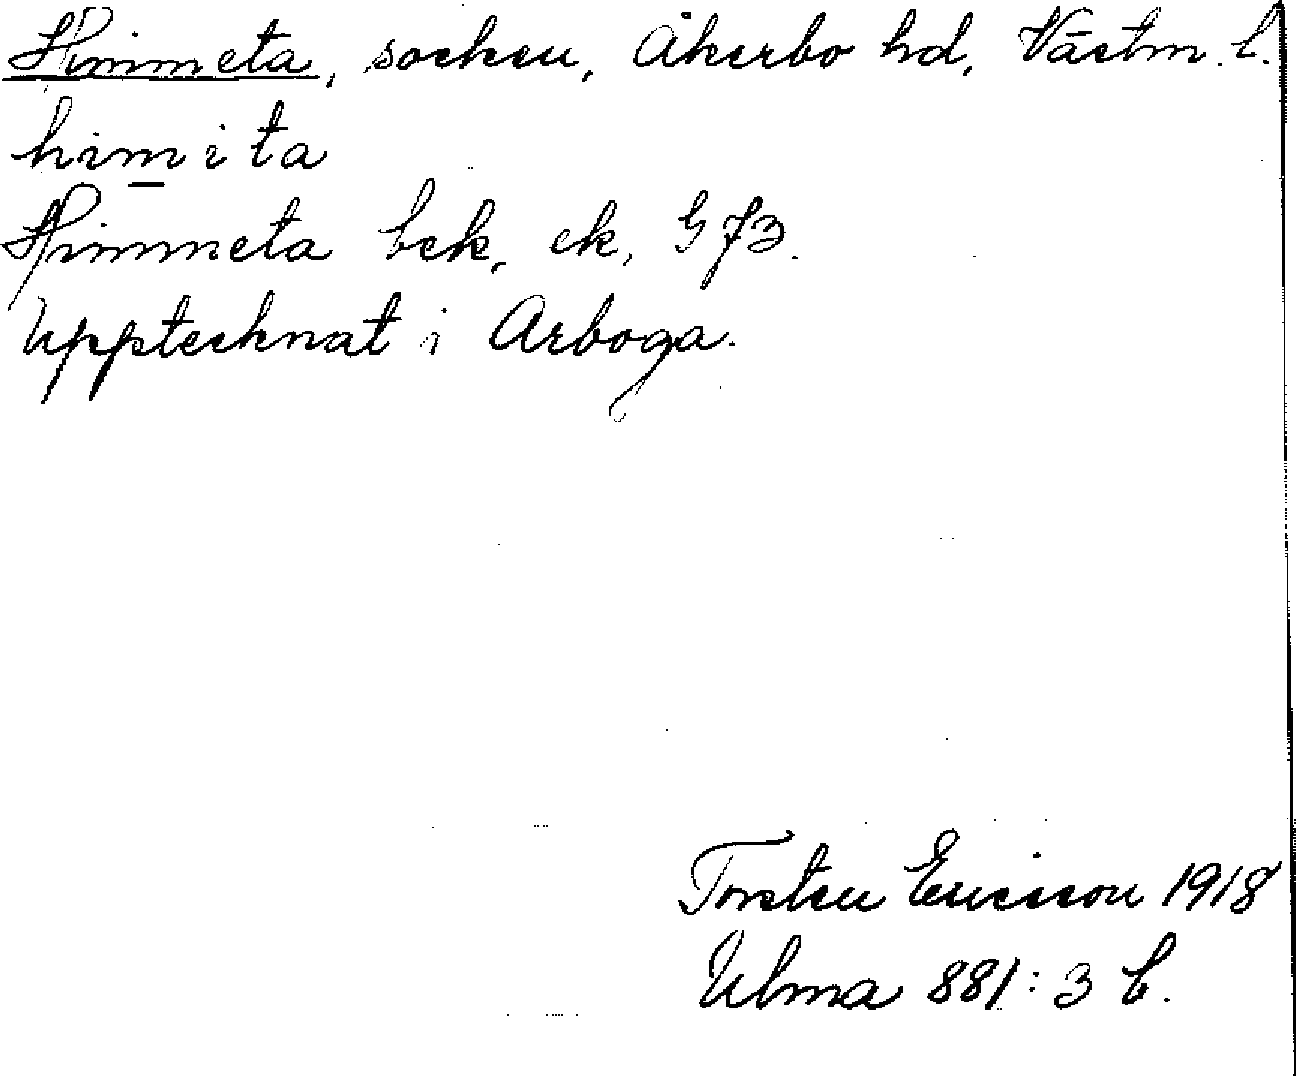 Himmeta, socken, Åkerbo hd, Västm. l.
himita
Himmeta bek, ek, G 73.
Upptecknat i Arboga.
Torsten Ericsson 1918
Ulma 881:3 b.